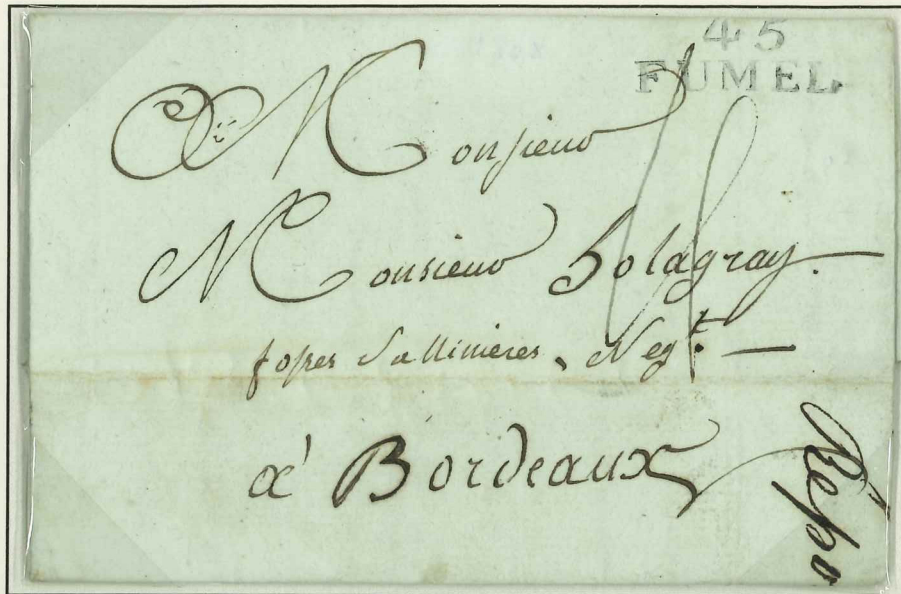 45
FUMEL
Monsieur
Monsieur Solagray.
fosses Sallinieres, Neg.t
à Bordeaux
Répo